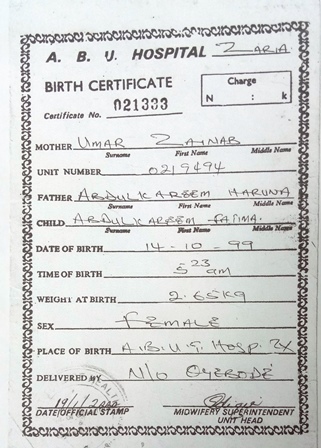 A. B. U. HOSPITAL ZARIA
BIRTH CERTIFICATE
Charge
N : k
Certificate No. 021333
MOTHER UMAR ZAINAB
Surname First Name Middle Name
UNIT NUMBER 0219494
FATHER ABDULKAREEM HARUNA
Surname First Name Middle Name
CHILD ABDULKAREEM FATIMA.
Surname First Name Middle Name
DATE OF BIRTH 14-10-99
TIME OF BIRTH 5 23 am
WEIGHT AT BIRTH 2.65Kg
SEX FEMALE
PLACE OF BIRTH A.B.U.T. HOSP. ZX
DELIVERED BY N/O OYEBODE
DATE/OFFICIAL STAMP
MIDWIFERY SUPERINTENDENT
UNIT HEAD